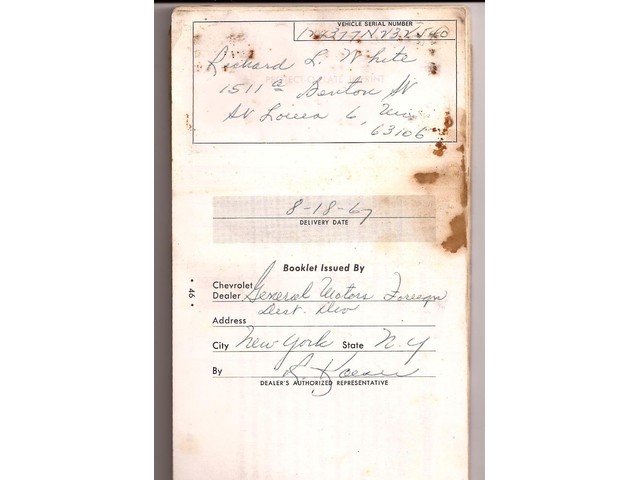 VEHICLE SERIAL NUMBER
Richard L. White
1511a Benton St
St Louis 6, Mo
63106
8-18-67
DELIVERY DATE
Booklet Issued By
Chevrolet
Dealer General Motors Foreign
Dist. Div
Address
City New York State N.Y
By
DEALER'S AUTHORIZED REPRESENTATIVE
• 46 •